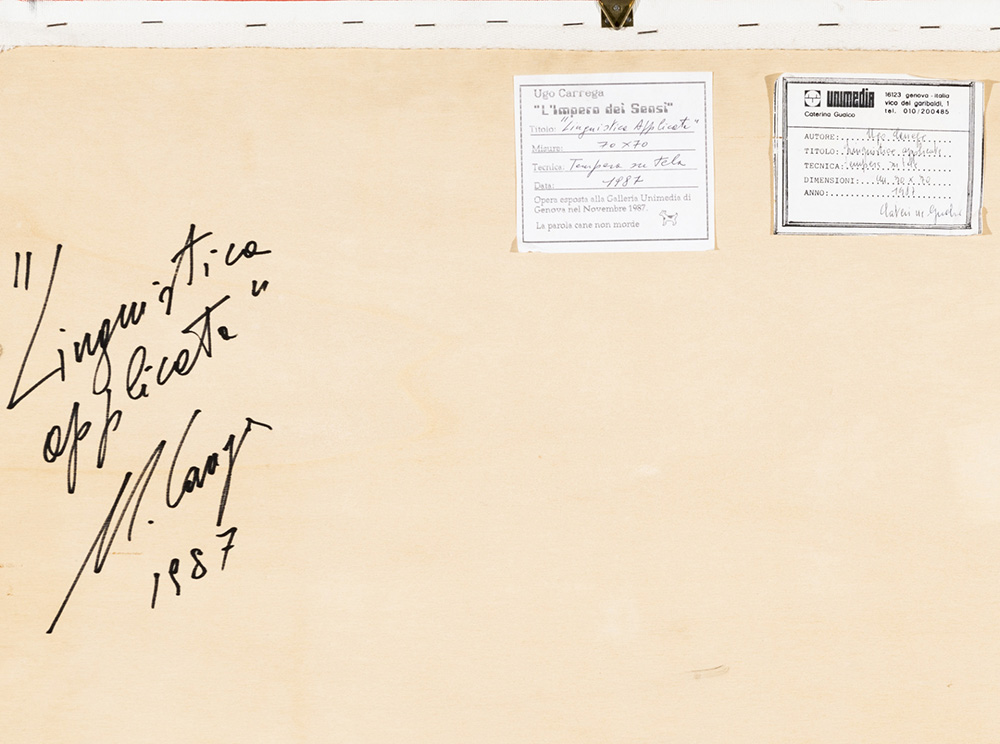 Ugo Carrega
"L'Impero dei Sensi"
Titolo: "Linguistica Applicata"
Misure: 70 x 70
Tecnica: Tempera su tela
Data: 1987
Opera esposta alla Galleria Unimedia di
Genova nel Novembre 1987.
La parola cane non morde
unimedia
Caterina Gualco
16123 genova - italia
vico dei garibaldi, 1
tel. 010/200485
AUTORE: Ugo Carrega
TITOLO: linguistica applicata
TECNICA: tempera su tela
DIMENSIONI: cm 70 x 70
ANNO: 1987
Caterina Gualco
"Linguistica
applicata"
U. Carrega
1987